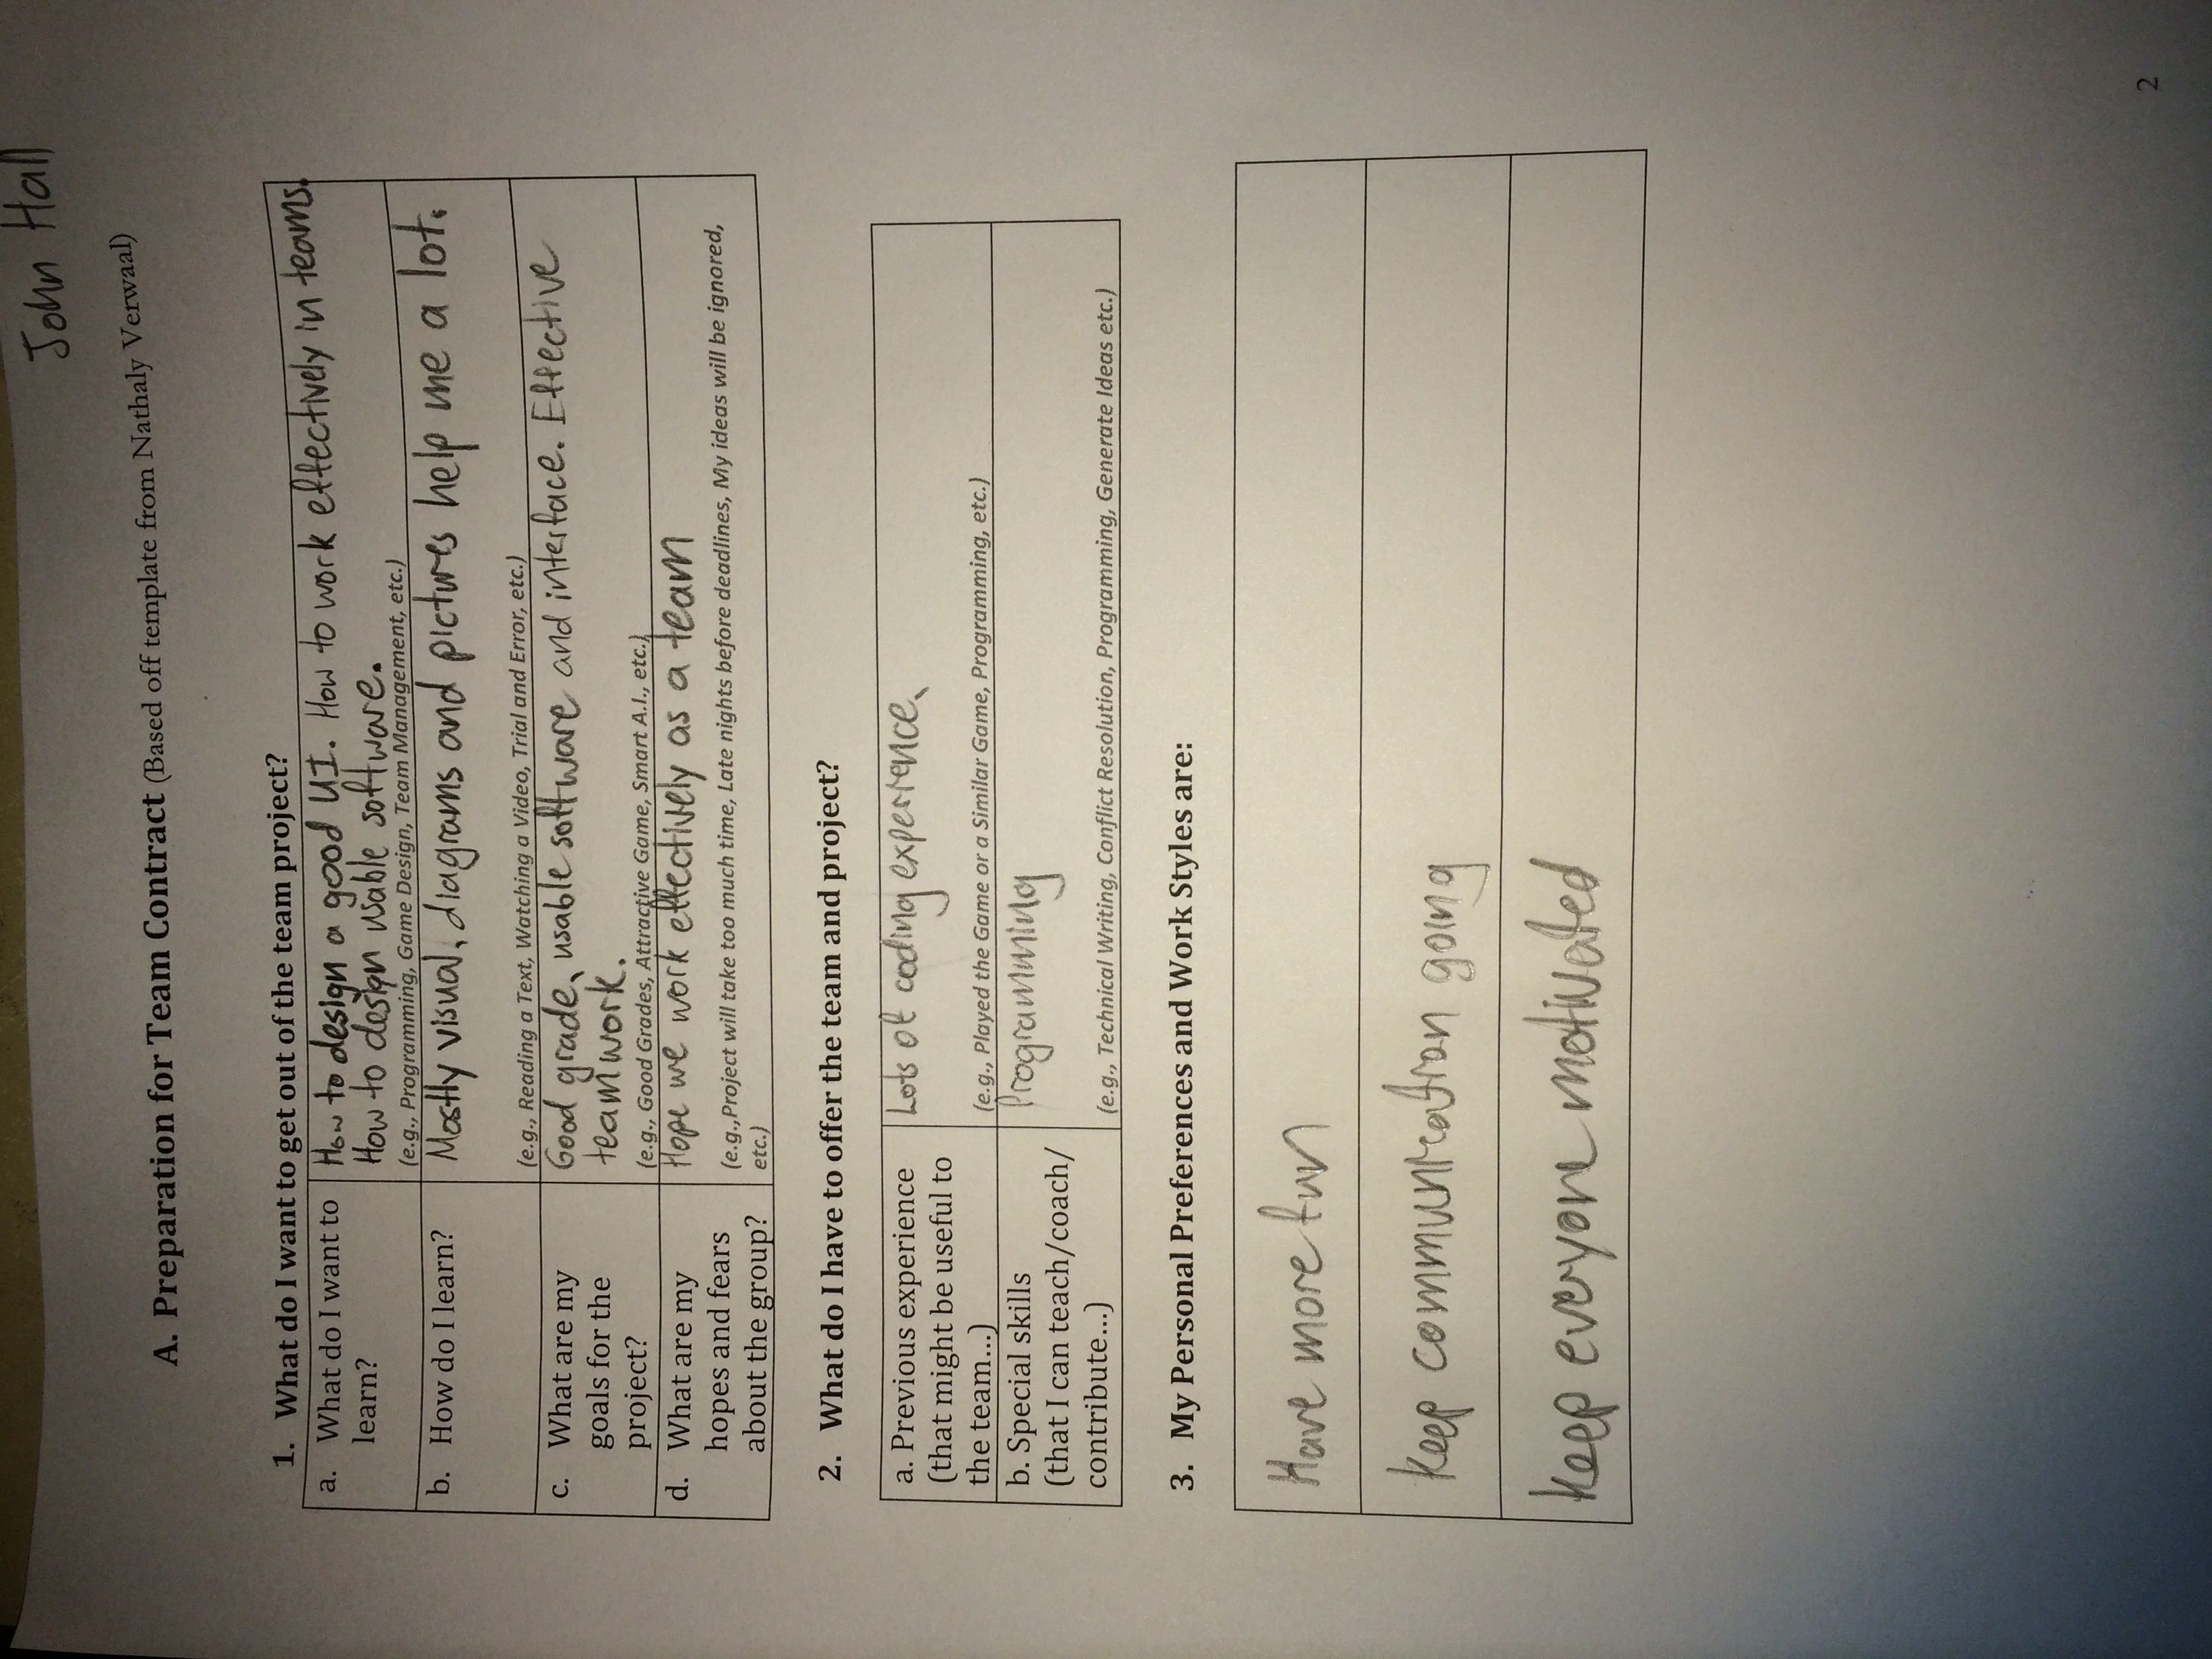 John Hall
A. Preparation for Team Contract (Based off template from Nathaly Verwaal)
1. What do I want to get out of the team project?
a. What do I want to learn?
How to design a good UI. How to work effectively in teams.
How to design usable software.
(e.g., Programming, Game Design, Team Management, etc.)
b. How do I learn?
Mostly visual, diagrams and pictures help me a lot.
(e.g., Reading a Text, Watching a Video, Trial and Error, etc.)
c. What are my
goals for the
project?
Good grade, usable software and interface. Effective
teamwork.
(e.g., Good Grades, Attractive Game, Smart A.I., etc.)
d. What are my
hopes and fears
about the group?
Hope we work effectively as a team
(e.g.,Project will take too much time, Late nights before deadlines, My ideas will be ignored,
etc.)
2. What do I have to offer the team and project?
a. Previous experience
(that might be useful to
the team...)
Lots of coding experience,
(e.g., Played the Game or a Similar Game, Programming, etc.)
b. Special skills
(that I can teach/coach/
contribute...)
Programming
(e.g., Technical Writing, Conflict Resolution, Programming, Generate Ideas etc.)
3. My Personal Preferences and Work Styles are:
Have more fun
Keep communication going
Keep everyone motivated
2